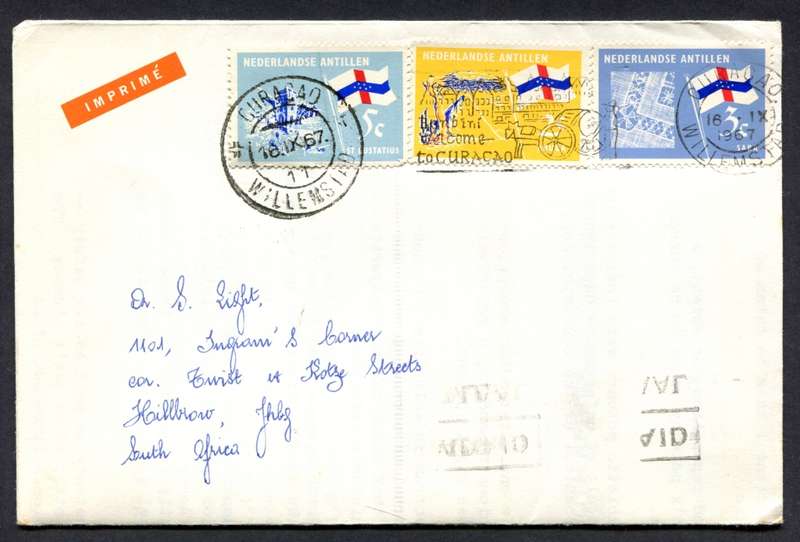 IMPRIMÉ
NEDERLANDSE ANTILLEN
5c
ST EUSTATIUS
NEDERLANDSE ANTILLEN
NEDERLANDSE ANTILLEN
3c
SABA
CURAÇAO
18.IX.67.
11
WILLEMSTAD
Bonbini
welcome
to CURAÇAO
CURAÇAO
16 IX
1967
WILLEMSTAD
Dr. S. Light,
1101, Ingram's Corner
cor. Twist & Kotze Streets
Hillbrow, Jhbg
South Africa